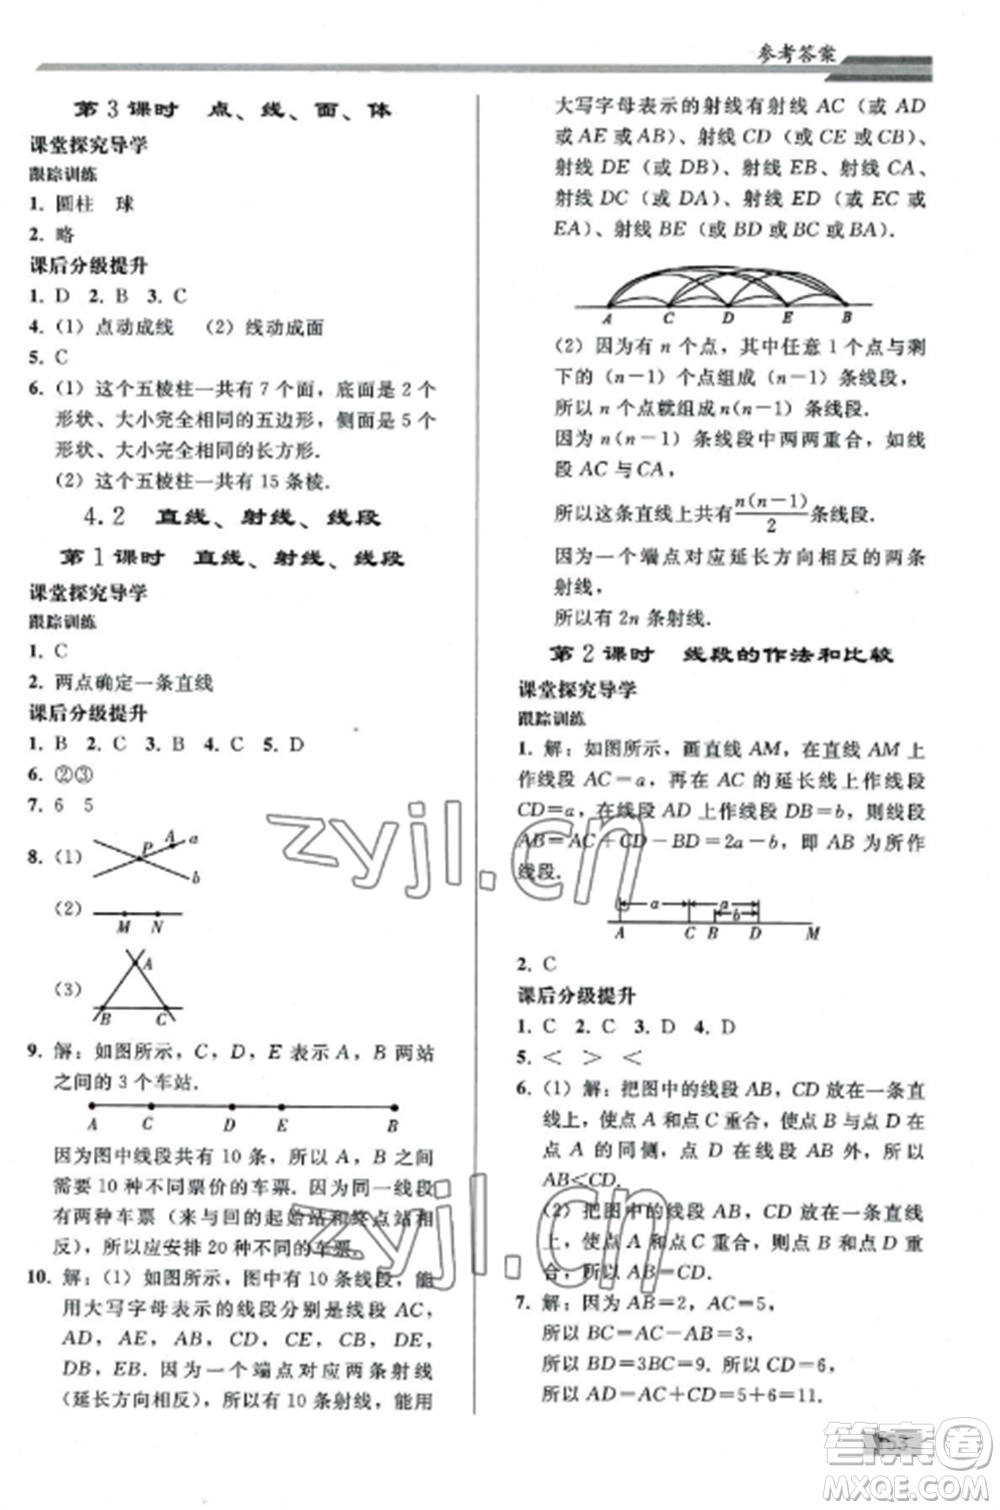 参考答案
第3课时 点、线、面、体
课堂探究导学
跟踪训练
1. 圆柱 球
2. 略
课后分级提升
1. D 2. B 3. C
4.（1）点动成线 （2）线动成面
5. C
6.（1）这个五棱柱一共有 7 个面，底面是 2 个
形状、大小完全相同的五边形，侧面是 5 个
形状、大小完全相同的长方形.
（2）这个五棱柱一共有 15 条棱.
4.2 直线、射线、线段
第1课时 直线、射线、线段
课堂探究导学
跟踪训练
1. C
2. 两点确定一条直线
课后分级提升
1. B 2. C 3. B 4. C 5. D
6. ②③
7. 6 5
8.（1）
P A a
b
（2）
M N
（3）
A
B C
9. 解：如图所示，C，D，E 表示 A，B 两站
之间的 3 个车站.
A C D E B
因为图中线段共有 10 条，所以 A，B 之间
需要 10 种不同票价的车票. 因为同一线段
有两种车票（来与回的起始站和终点站相
反），所以应安排 20 种不同的车票.
10. 解：（1）如图所示，图中有 10 条线段，能
用大写字母表示的线段分别是线段 AC，
AD，AE，AB，CD，CE，CB，DE，
DB，EB. 因为一个端点对应两条射线
（延长方向相反），所以有 10 条射线，能用
大写字母表示的射线有射线 AC（或 AD
或 AE 或 AB）、射线 CD（或 CE 或
CB）、射线 DE（或 DB）、射线 EB、射线 CA、
射线 DC（或 DA）、射线 ED（或 EC 或
EA）、射线 BE（或 BD 或 BC 或 BA）.
A C D E B
（2）因为有 n 个点，其中任意 1 个点与剩
下的（n－1）个点组成（n－1）条线段，
所以 n 个点就组成 n(n－1) 条线段.
因为 n（n－1）条线段中两两重合，如线
段 AC 与 CA，
所以这条直线上共有 n(n－1)/2 条线段.
因为一个端点对应延长方向相反的两条
射线，
所以有 2n 条射线.
第2课时 线段的作法和比较
课堂探究导学
跟踪训练
1. 解：如图所示，画直线 AM，在直线 AM 上
作线段 AC＝a，再在 AC 的延长线上作线段
CD＝a，在线段 AD 上作线段 DB＝b，则线段
AB＝AC＋CD－DB＝2a－b，即 AB 为所作
线段.
a a
b
A C B D M
2. C
课后分级提升
1. C 2. C 3. D 4. D
5. ＜ ＞ ＜
6.（1）解：把图中的线段 AB，CD 放在一条直
线上，使点 A 和点 C 重合，使点 B 与点 D 在
点 A 的同侧，点 D 在线段 AB 外，所以
AB＜CD.
（2）把图中的线段 AB，CD 放在一条直线
上，使点 A 和点 C 重合，点 B 和点 D 重
合，所以 AB＝CD.
7. 解：因为 AB＝2，AC＝5，
所以 BC＝AC－AB＝3，
所以 BD＝3BC＝9. 所以 CD＝6，
所以 AD＝AC＋CD＝5＋6＝11.
zyjl.cn
zyjl.cn
答案圈
MXQE.COM